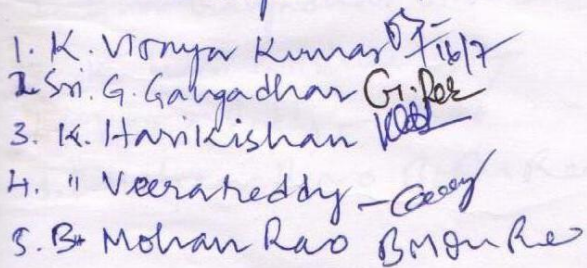 1. K. Vionya Kumar 16/7
2 Sri. G. Gangadhar G. Rae
3. K. Harikishan
4. " Veerareddy -
5. B. Mohan Rao BMon Rao